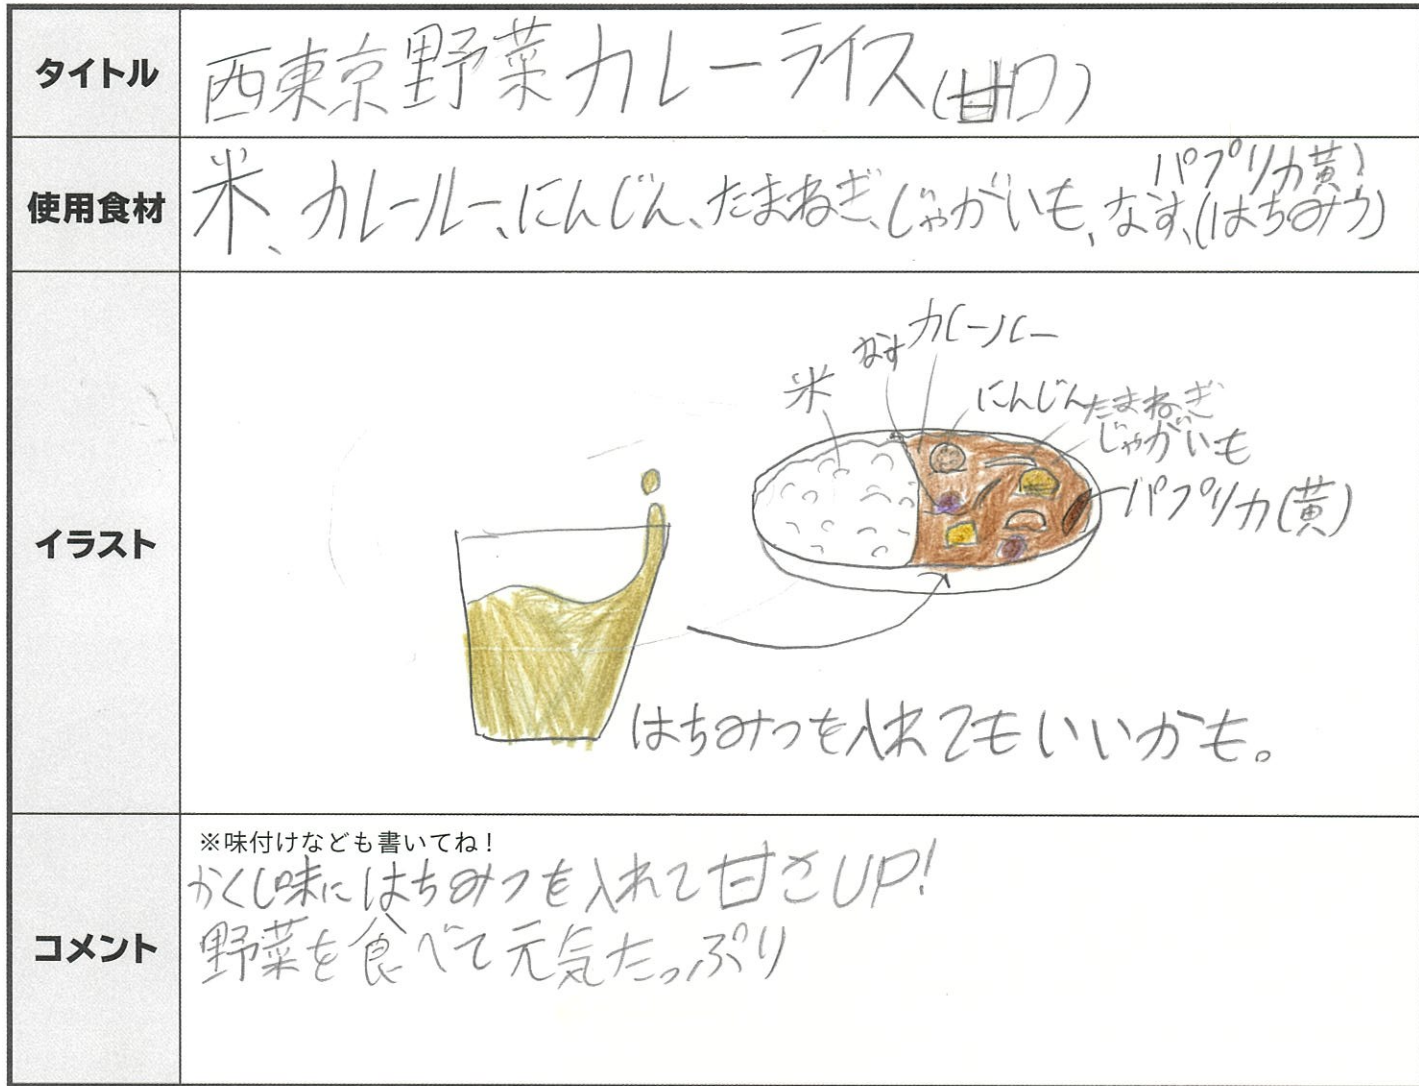 タイトル
西東京野菜カレーライス(甘口)
使用食材
パプリカ黄)
米、カレールー、にんじん、たまねぎ、じゃがいも、なす、(はちみつ)
イラスト
カレールー
なす
米
にんじん
たまねぎ
じゃがいも
パプリカ(黄)
はちみつを入れてもいいかも。
コメント
※味付けなども書いてね！
かくし味にはちみつを入れて甘さUP!
野菜を食べて元気たっぷり